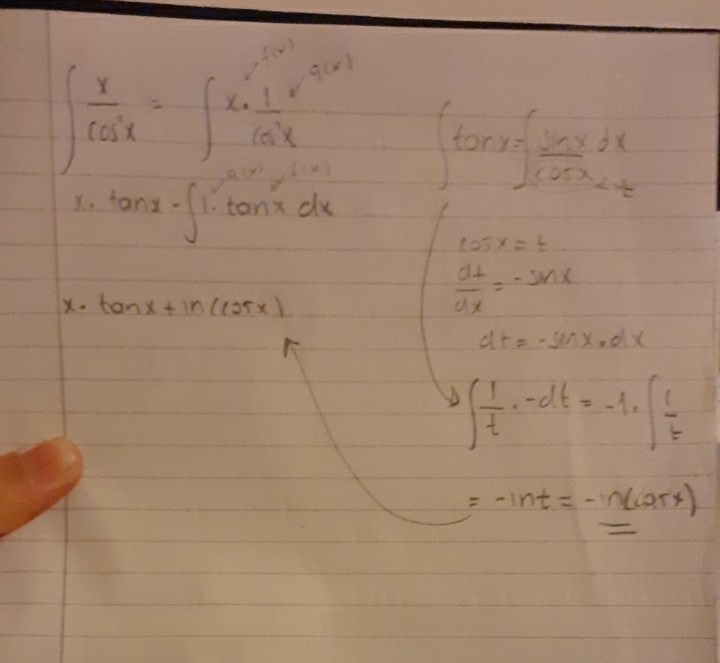 f(x)
g(x)
∫ x/cos²x = ∫ x · 1/cos²x
x · tanx - ∫ 1 · tanx dx
x · tanx + ln(cosx)
∫ tanx = ∫ sinx/cosx dx
t
cosx = t
dt/dx = -sinx
dt = -sinx · dx
∫ 1/t · -dt = -1 · ∫ 1/t
= -lnt = -ln(cosx)